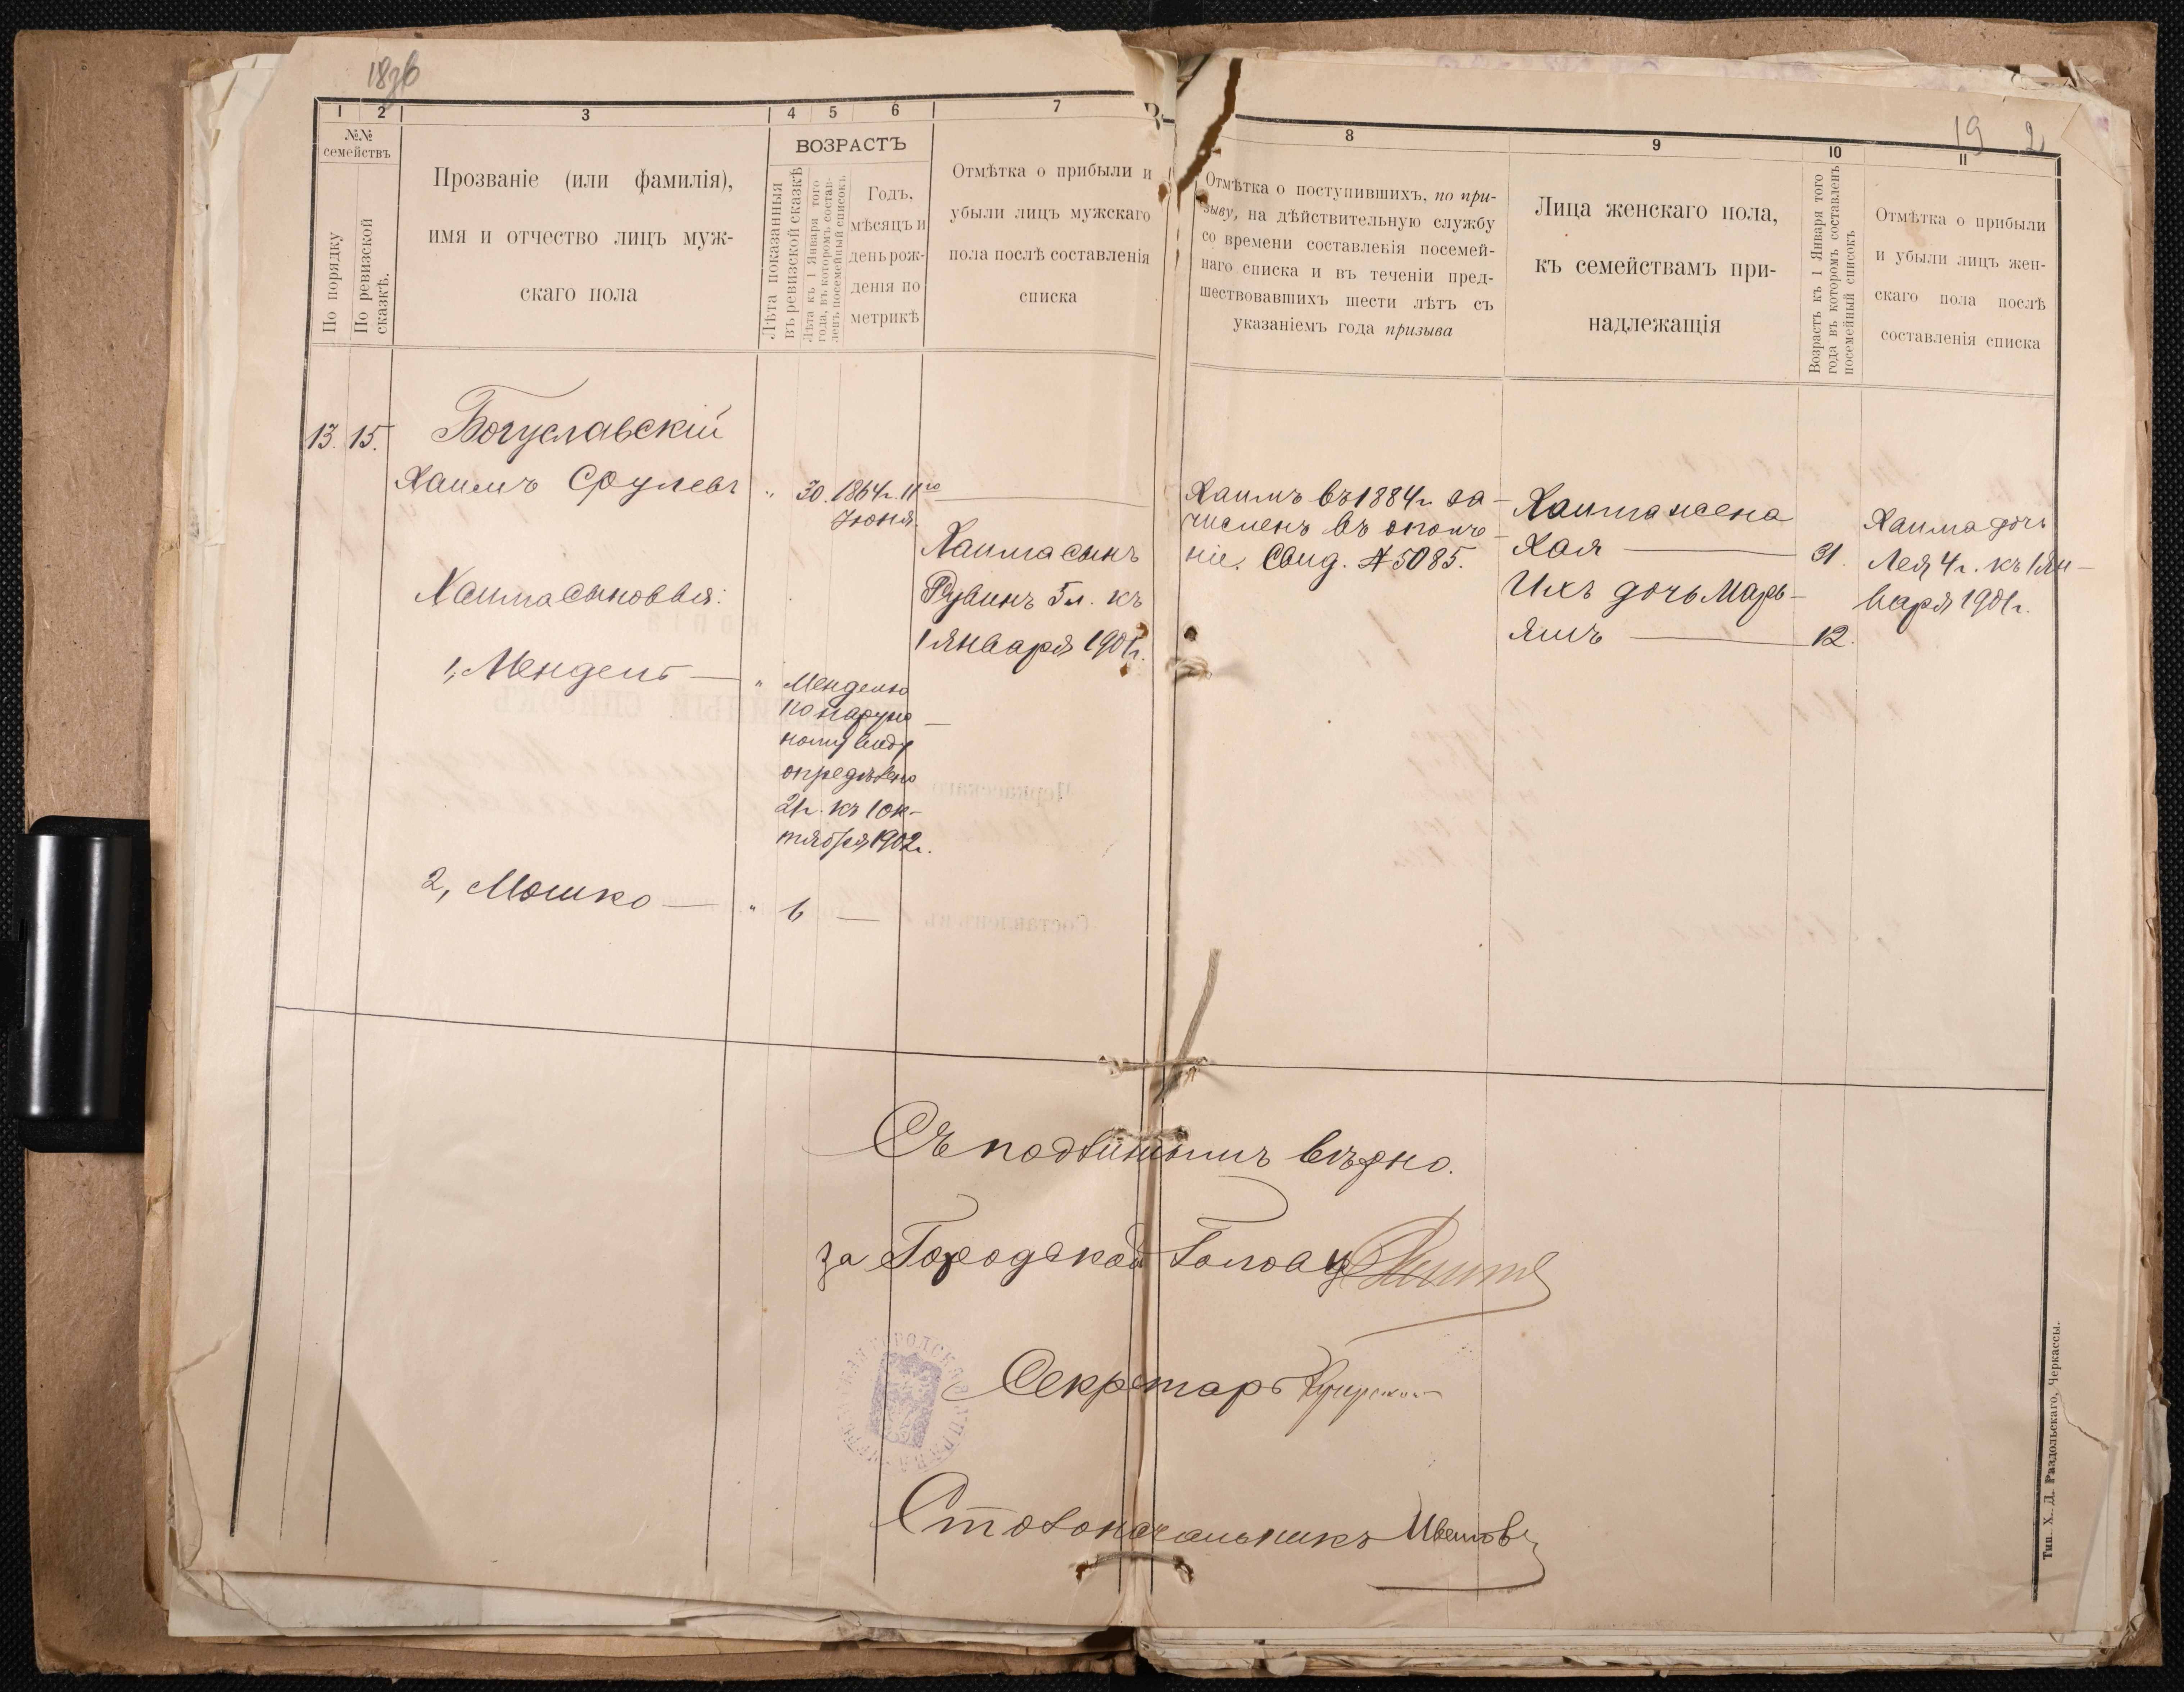 18зв
19 2
1 2 3 4 5 6 7
№№ семействъ
По порядку
По ревизской сказкѣ.
Прозваніе (или фамилія),
имя и отчество лицъ муж-
скаго пола
ВОЗРАСТЪ
Лѣта показанныя
въ ревизской сказкѣ
Лѣта къ 1 Января того
года, въ которомъ состав-
ленъ посемейный списокъ.
Годъ,
мѣсяцъ и
день рож-
денія по
метрикѣ
Отмѣтка о прибыли и
убыли лицъ мужскаго
пола послѣ составленія
списка
8 9 10 11
Отмѣтка о поступившихъ, по при-
зыву, на дѣйствительную службу
со времени составленія посемей-
наго списка и въ теченіи пред-
шествовавшихъ шести лѣтъ съ
указаніемъ года призыва
Лица женскаго пола,
къ семействамъ при-
надлежащія
Возрастъ къ 1 Января того
года въ которомъ составленъ
посемейный списокъ
Отмѣтка о прибыли
и убыли лицъ жен-
скаго пола послѣ
составленія списка
13. 15. Богуславскій
Хаимъ Срулевъ " 30. 1864г. 11го
Іюня.
Хаима сыновья:
1, Мендель — "
Менделю
по наруж-
ному виду
опредѣлено
21г. къ 1 ок-
тября 1902г.
2, Мошко — " 6 —
Хаима сынъ
Рувинъ 5л. къ
1 января 1901г.
Хаимъ въ 1884г. за-
численъ въ ополче-
ніе. Свид. № 5085.
Хаима жена
Хая — 31.
Ихъ дочь Марь-
ямъ — 12.
Хаима дочь
Лея 4г. къ 1 Ян-
варя 1901г.
Съ подлиннымъ вѣрно.
за Городской Голова
Секретарь
Столоначальникъ
Тип. Х. Д. Раздольскаго, Черкассы.